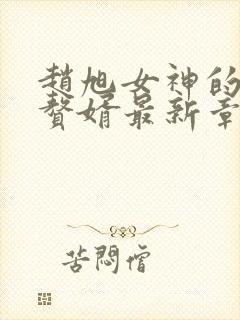 趙旭女神的
贅婿最新章
苦悶僧